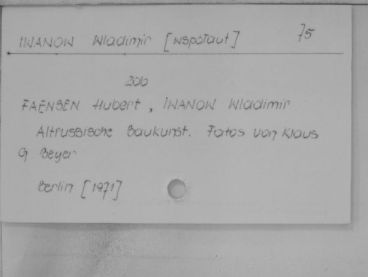 IWANOW Wladimir [współaut] 75
300
FAENSEN Hubert, IWANOW Wladimir
Altrussische Baukunst. Fotos von Klaus
G Beyer
Berlin [1971]